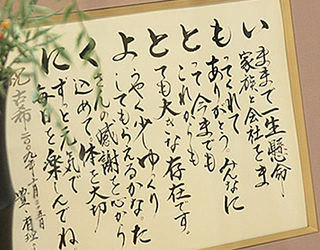 いままで一生懸命、
家族と会社をま
もってくれて
ありがとう。みんなに
とってこれからも
今までも
とても大きな存在です。
ようやく少しゆっくり
してもらえるかな。た
くさんの感謝を心から
込めて。体を大切
にずっと元気で
毎日を楽しんでね。
祝古希 二〇〇九年